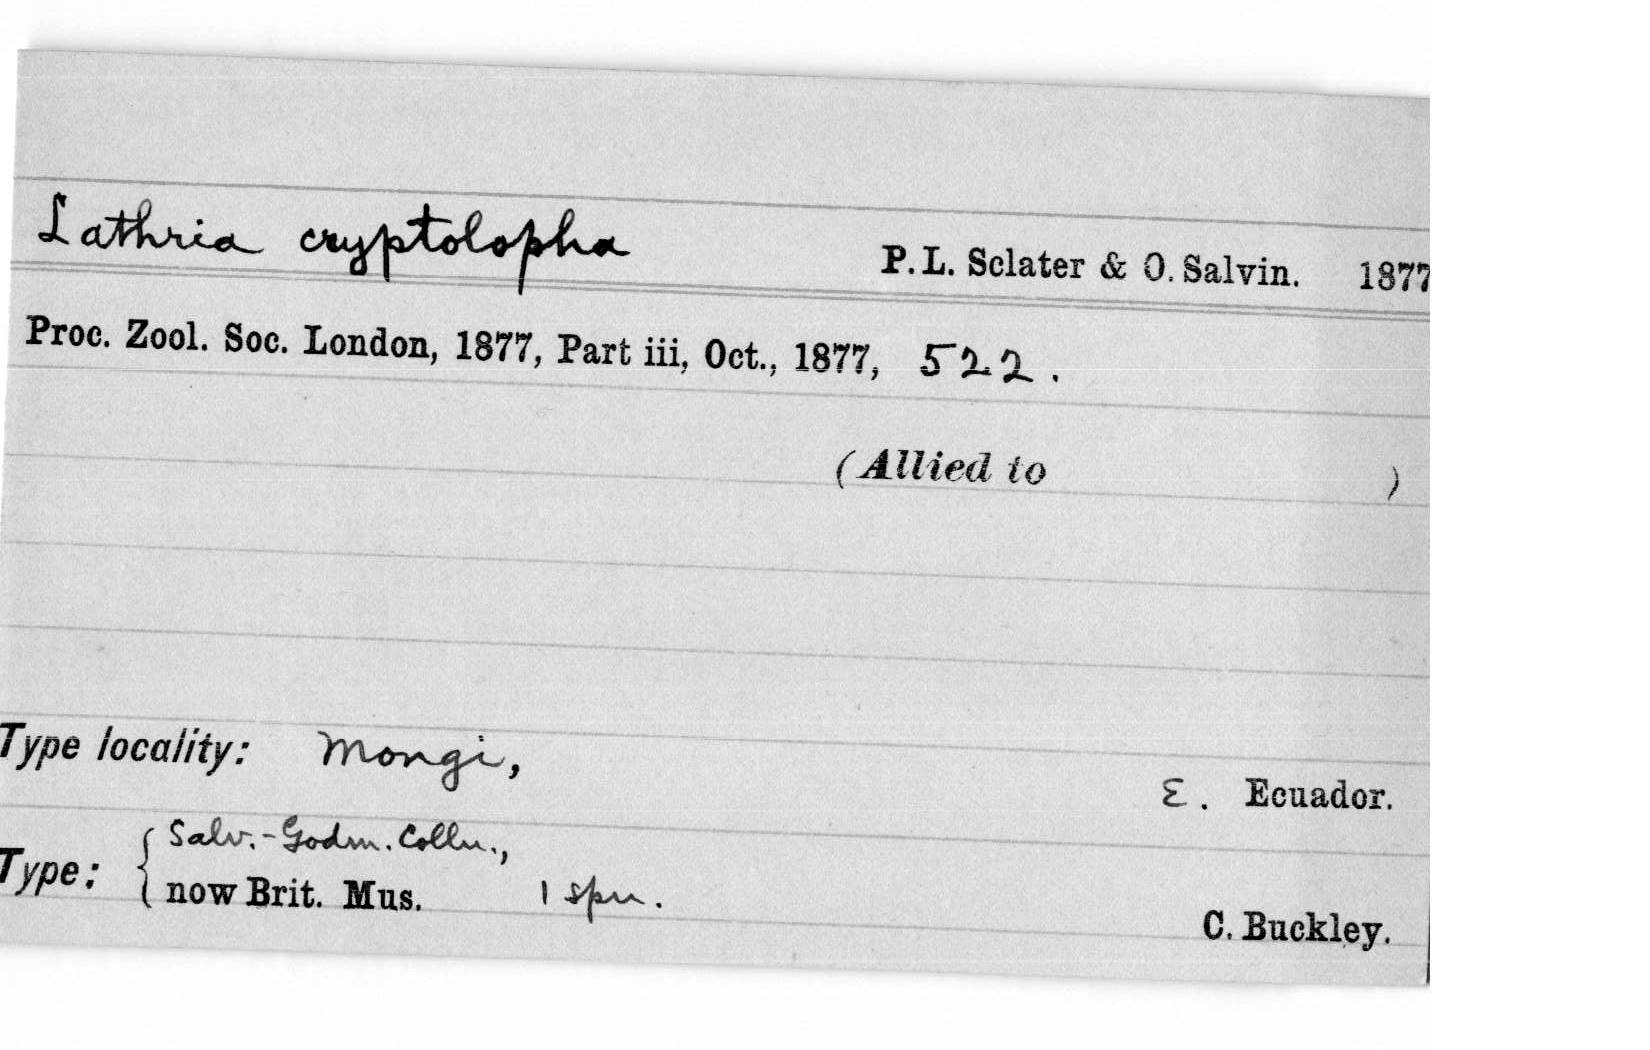 Lathria cryptolopha P. L. Sclater & O. Salvin. 1877
Proc. Zool. Soc. London, 1877, Part iii, Oct., 1877, 522.
(Allied to )
Type locality: Mongi, E. Ecuador.
Type: { Salv.-Godm. Colln.,
now Brit. Mus. 1 spn.
C. Buckley.